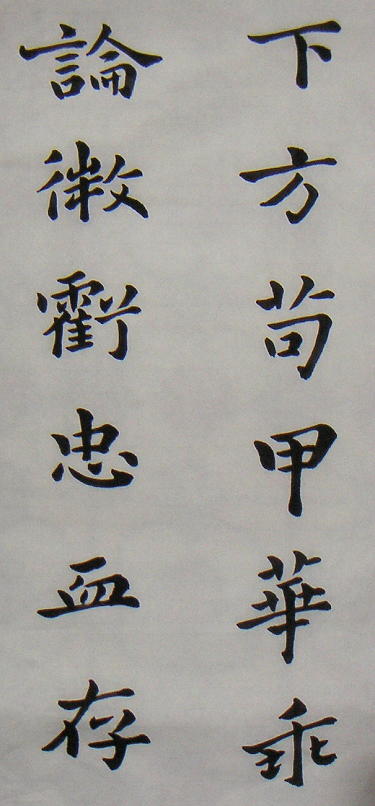 下方苟甲華乖
論微虧忠血存